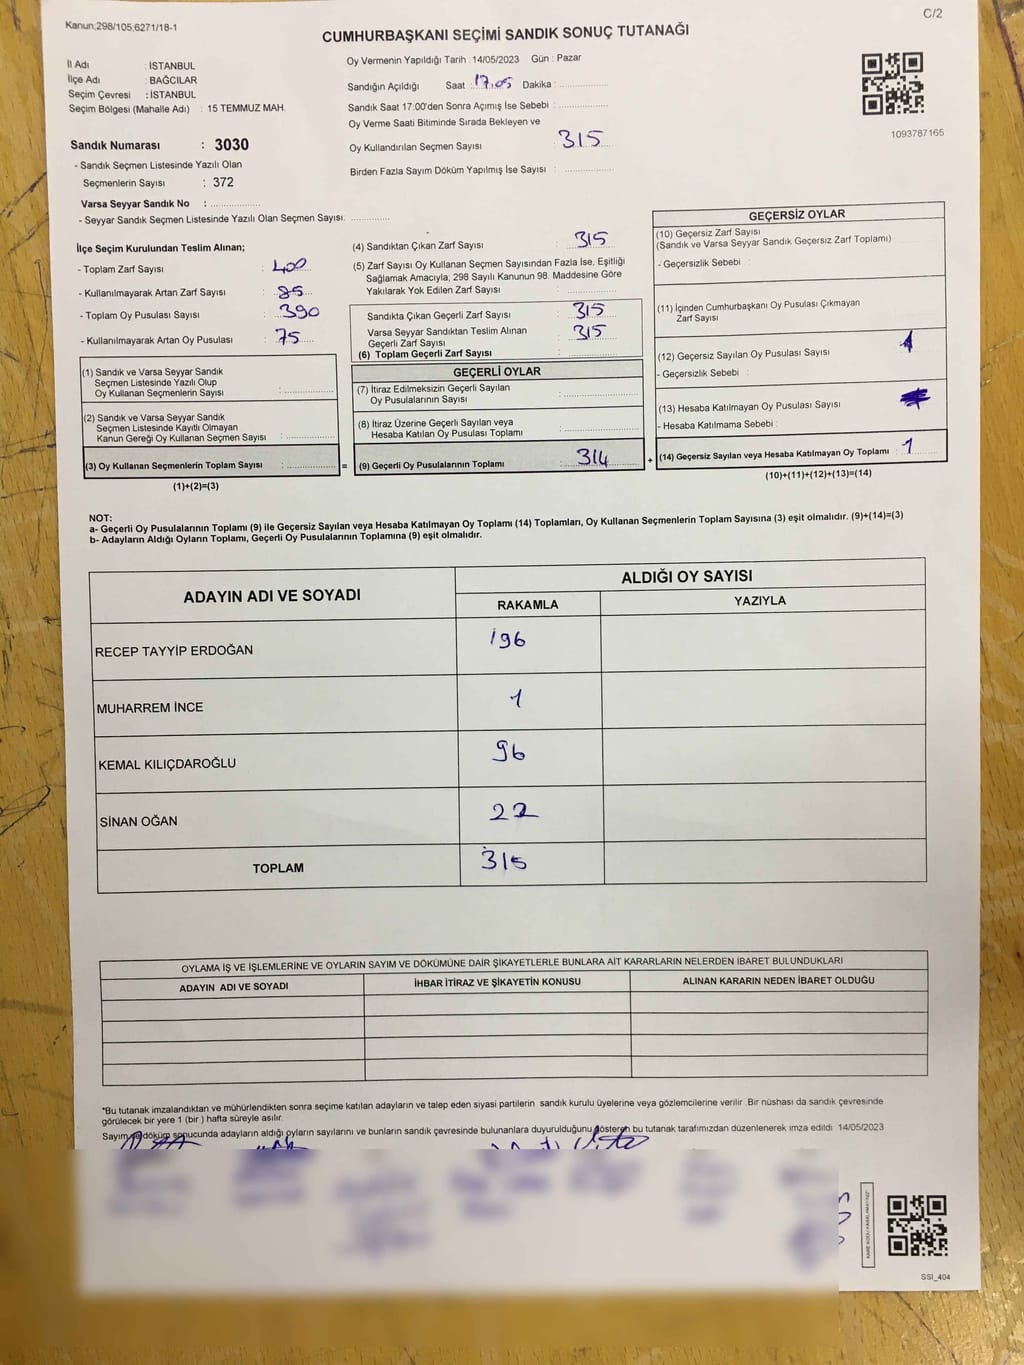 Kanun;298/105,6271/18-1
C/2
CUMHURBAŞKANI SEÇİMİ SANDIK SONUÇ TUTANAĞI
İl Adı : İSTANBUL
İlçe Adı : BAĞCILAR
Seçim Çevresi : İSTANBUL
Seçim Bölgesi (Mahalle Adı) : 15 TEMMUZ MAH.
Sandık Numarası : 3030
- Sandık Seçmen Listesinde Yazılı Olan
Seçmenlerin Sayısı : 372
Varsa Seyyar Sandık No :
- Seyyar Sandık Seçmen Listesinde Yazılı Olan Seçmen Sayısı:
Oy Vermenin Yapıldığı Tarih : 14/05/2023 Gün : Pazar
Sandığın Açıldığı Saat : 17.05 Dakika :
Sandık Saat 17:00'den Sonra Açımış İse Sebebi :
Oy Verme Saati Bitiminde Sırada Bekleyen ve
Oy Kullandırılan Seçmen Sayısı : 315
Birden Fazla Sayım Döküm Yapılmış İse Sayısı :
1093787165
İlçe Seçim Kurulundan Teslim Alınan;
- Toplam Zarf Sayısı : 400
- Kullanılmayarak Artan Zarf Sayısı : 85
- Toplam Oy Pusulası Sayısı : 390
- Kullanılmayarak Artan Oy Pusulası : 75
(1) Sandık ve Varsa Seyyar Sandık
Seçmen Listesinde Yazılı Olup
Oy Kullanan Seçmenlerin Sayısı :
(2) Sandık ve Varsa Seyyar Sandık
Seçmen Listesinde Kayıtlı Olmayan
Kanun Gereği Oy Kullanan Seçmen Sayısı :
(3) Oy Kullanan Seçmenlerin Toplam Sayısı :
(1)+(2)=(3)
(4) Sandıktan Çıkan Zarf Sayısı : 315
(5) Zarf Sayısı Oy Kullanan Seçmen Sayısından Fazla İse, Eşitliği
Sağlamak Amacıyla, 298 Sayılı Kanunun 98. Maddesine Göre
Yakılarak Yok Edilen Zarf Sayısı :
Sandıkta Çıkan Geçerli Zarf Sayısı : 315
Varsa Seyyar Sandıktan Teslim Alınan
Geçerli Zarf Sayısı : 315
(6) Toplam Geçerli Zarf Sayısı :
GEÇERLİ OYLAR
(7) İtiraz Edilmeksizin Geçerli Sayılan
Oy Pusulalarının Sayısı :
(8) İtiraz Üzerine Geçerli Sayılan veya
Hesaba Katılan Oy Pusulası Toplamı :
= (9) Geçerli Oy Pusulalarının Toplamı : 314
GEÇERSİZ OYLAR
(10) Geçersiz Zarf Sayısı
(Sandık ve Varsa Seyyar Sandık Geçersiz Zarf Toplamı)
- Geçersizlik Sebebi :
(11) İçinden Cumhurbaşkanı Oy Pusulası Çıkmayan
Zarf Sayısı
(12) Geçersiz Sayılan Oy Pusulası Sayısı 1
- Geçersizlik Sebebi :
(13) Hesaba Katılmayan Oy Pusulası Sayısı
- Hesaba Katılmama Sebebi :
+ (14) Geçersiz Sayılan veya Hesaba Katılmayan Oy Toplamı : 1
(10)+(11)+(12)+(13)=(14)
NOT:
a- Geçerli Oy Pusulalarının Toplamı (9) ile Geçersiz Sayılan veya Hesaba Katılmayan Oy Toplamı (14) Toplamları, Oy Kullanan Seçmenlerin Toplam Sayısına (3) eşit olmalıdır. (9)+(14)=(3)
b- Adayların Aldığı Oyların Toplamı, Geçerli Oy Pusulalarının Toplamına (9) eşit olmalıdır.
ADAYIN ADI VE SOYADI
ALDIĞI OY SAYISI
RAKAMLA YAZIYLA
RECEP TAYYİP ERDOĞAN 196
MUHARREM İNCE 1
KEMAL KILIÇDAROĞLU 96
SİNAN OĞAN 22
TOPLAM 315
OYLAMA İŞ VE İŞLEMLERİNE VE OYLARIN SAYIM VE DÖKÜMÜNE DAİR ŞİKAYETLERLE BUNLARA AİT KARARLARIN NELERDEN İBARET BULUNDUKLARI
ADAYIN ADI VE SOYADI İHBAR İTİRAZ VE ŞİKAYETİN KONUSU ALINAN KARARIN NEDEN İBARET OLDUĞU
*Bu tutanak imzalandıktan ve mühürlendikten sonra seçime katılan adayların ve talep eden siyasi partilerin sandık kurulu üyelerine veya gözlemcilerine verilir. Bir nüshası da sandık çevresinde
görülecek bir yere 1 (bir) hafta süreyle asılır.
Sayım ve döküm sonucunda adayların aldığı oyların sayılarını ve bunların sandık çevresinde bulunanlara duyurulduğunu gösteren bu tutanak tarafımızdan düzenlenerek imza edildi 14/05/2023
SSI_404